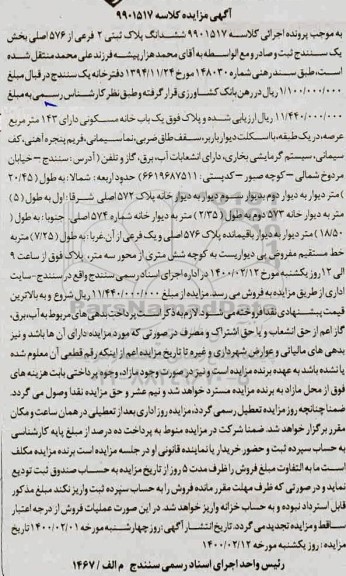 آگهی مزایده کلاسه ۹۹۰۱۵۱۷
به موجب پرونده اجرائی کلاسه ۹۹۰۱۵۱۷ ششدانگ پلاک ثبتی ۲ فرعی از ۵۷۶ اصلی بخش
یک سنندج ثبت و صادر و مع الواسطه به آقای محمد هزار پیشه فرزند علی محمد منتقل شده
است، طبق سند رهنی شماره ۱۴۸۰۳۰ مورخ ۱۳۹۴/۱۱/۲۴ دفترخانه یک سنندج در قبال مبلغ
۱/۱۰۰/۰۰۰/۰۰۰ ریال در رهن بانک کشاورزی قرار گرفته و طبق نظر کارشناس رسمی به مبلغ
۱۱/۴۴۰/۰۰۰/۰۰۰ ریال ارزیابی شده و پلاک فوق یک باب خانه مسکونی دارای ۱۴۳ متر مربع
عرصه، در یک طبقه، با اسکلت دیوار باربر، سقف طاق ضربی، نما سیمانی، فریم پنجره آهنی، کف
سیمانی، سیستم گرمایشی بخاری، دارای انشعابات آب، برق، گاز و تلفن (آدرس: سنندج - خیابان
مردوخ شمالی - کوچه صبور - کدپستی: ۶۶۱۹۶۸۷۵۱۱) حدود اربعه: شمالا: به طول (۲۰/۴۵
) متر دیوار به دیوار دوم بدیوار سوم دیوار به دیوار خانه پلاک ۵۷۲ اصلی شرقا: اول به طول (۵)
متر به دیوار خانه ۵۷۳ دوم به طول (۲/۳۵) متر به دیوار خانه شماره ۵۷۴ اصلی. جنوبا: به طول (
۱۸/۵۰) متر دیوار به دیوار باقیمانده پلاک ۵۷۶ اصلی و یک فرعی از آن. غربا: به طول (۷/۲۵) متر به
خط مستقیم مفروض پی دیواریست به کوچه شش متری از محور سه متر، پلاک فوق از ساعت ۹
الی ۱۲ روز یکشنبه مورخ ۱۴۰۰/۰۲/۱۲ در اداره اجرای اسناد رسمی سنندج واقع در سنندج-سایت
اداری از طریق مزایده به فروش می رسد. مزایده از مبلغ ۱۱/۴۴۰/۰۰۰/۰۰۰ ریال شروع و به بالاترین
قیمت پیشنهادی نقدا فروخته می شود. لازم به ذکر است پرداخت بدهی های مربوط به آب، برق،
گاز اعم از حق انشعاب و یا حق اشتراک و مصرف در صورتی که مورد مزایده دارای آن ها باشد و نیز
بدهی های مالیاتی و عوارض شهرداری و غیره تا تاریخ مزایده اعم از اینکه رقم قطعی آن معلوم شده
یا نشده باشد به عهده برنده مزایده است و نیز در صورت وجود مازاد، وجوه پرداختی بابت هزینه های
فوق از محل مازاد به برنده مزایده مسترد خواهد شد و نیم عشر و حق مزایده نقدا وصول می گردد.
ضمنا چنانچه روز مزایده تعطیل رسمی گردد، مزایده روز اداری بعد از تعطیلی در همان ساعت و مکان
مقرر برگزار خواهد شد. ضمنا شرکت در مزایده منوط به پرداخت ده درصد از مبلغ پایه کارشناسی
به حساب سپرده ثبت و حضور خریدار یا نماینده قانونی او در جلسه مزایده است برنده مزایده مکلف
است ما به التفاوت مبلغ فروش را ظرف مدت ۵ روز از تاریخ مزایده به حساب صندوق ثبت تودیع
نماید و در صورتی که ظرف مهلت مقرر مانده فروش را به حساب سپرده ثبت واریز نکند مبلغ مذکور
قابل استرداد نبوده و به حساب خزانه واریز خواهد شد. در این صورت عملیات فروش از درجه اعتبار
ساقط و مزایده تجدید می گردد. تاریخ انتشار آگهی: روز چهارشنبه مورخه ۱۴۰۰/۰۲/۰۱ تاریخ
مزایده: روز یکشنبه مورخه ۱۴۰۰/۰۲/۱۲
رئیس واحد اجرای اسناد رسمی سنندج م الف / ۱۴۶۷